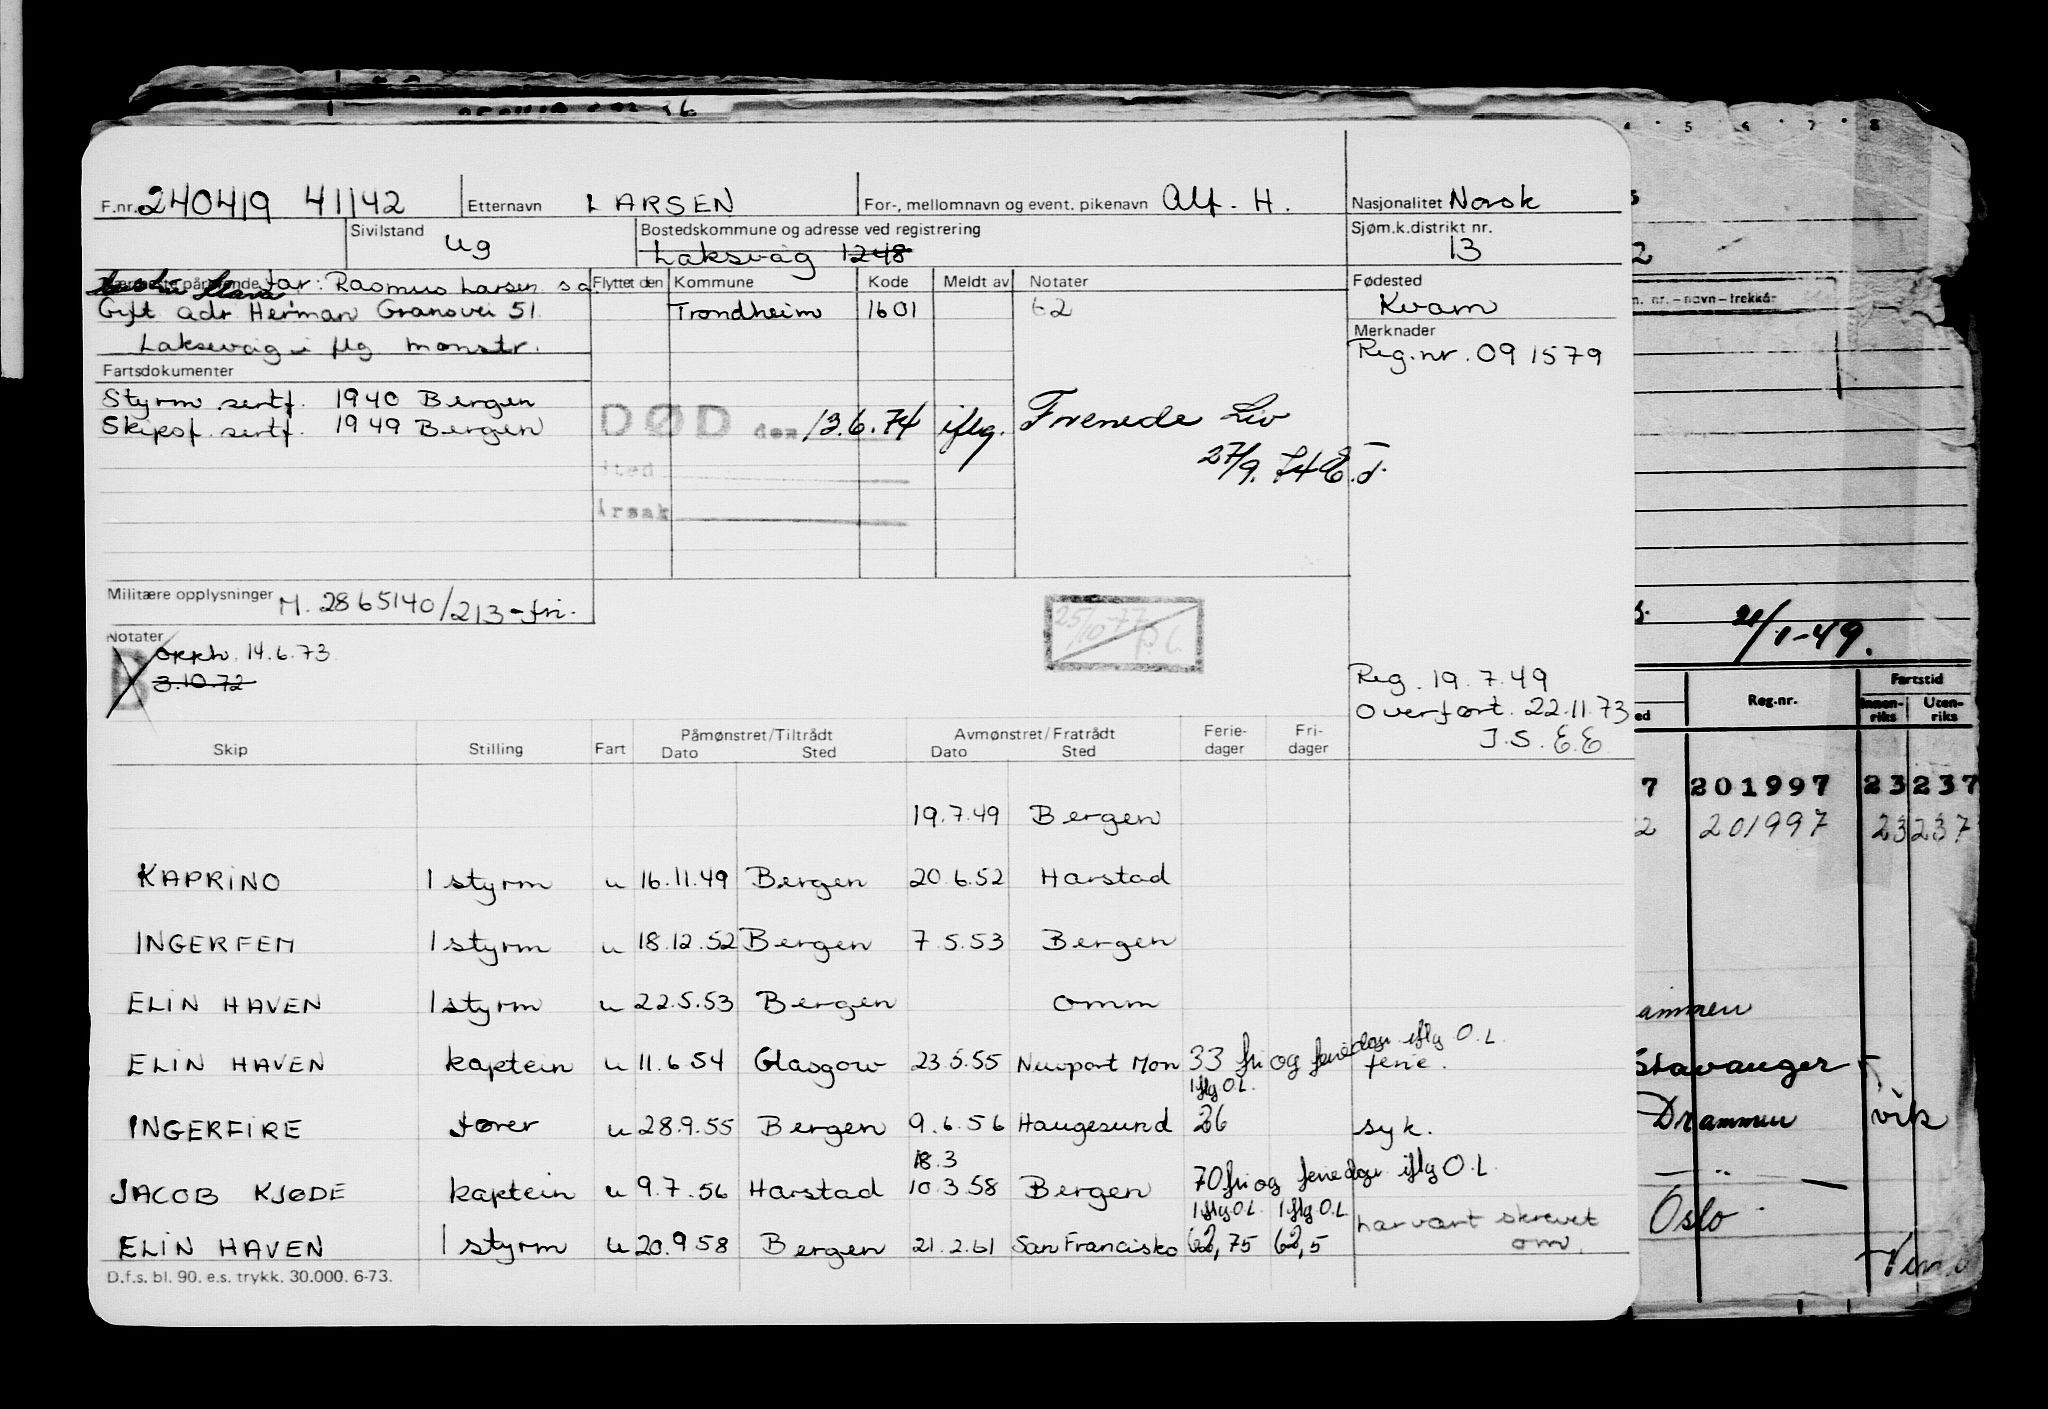 F.nr. 240419 41142 Etternavn LARSEN For-, mellomnavn og event. pikenavn Alf. H. Nasjonalitet Norsk
Sivilstand ug Bostedskommune og adresse ved registrering Laksevåg 1248 Sjøm.k.distrikt nr. 13
far: Rasmus Larsen s.a. Flyttet den Kommune Kode Meldt av Notater Fødested
Gift adr Herman Gransvei 51. Trondheim 1601 62 Kvam
Laksevåg i flg mønstr. Merknader
Reg.nr. 091579
Fartsdokumenter
Styrm sertf. 1940 Bergen
Skipsf. sertf. 1949 Bergen
DØD den 13.6.74 iflg. Forenede Liv
27/9. 74
sted
Årsak
Militære opplysninger M. 2865140/213-fri.
Notater
B opph. 14.6.73
3.10.72
25/10-77
Reg. 19.7.49
Overført. 22.11.73
J.S. E.E
Skip Stilling Fart Påmønstret/Tiltrådt Dato Sted Avmønstret/Fratrådt Dato Sted Ferie-dager Fri-dager
19.7.49 Bergen
KAPRINO 1 styrm u 16.11.49 Bergen 20.6.52 Harstad
INGERFEM 1 styrm u 18.12.52 Bergen 7.5.53 Bergen
ELIN HAVEN 1 styrm u 22.5.53 Bergen omm
ELIN HAVEN kaptein u 11.6.54 Glasgow 23.5.55 Newport Mon 33 fri og feriedgr iflg O.L. ferie.
iflg O.L.
INGERFIRE fører u 28.9.55 Bergen 9.6.56 Haugesund 26 syk.
18.3
JACOB KJØDE kaptein u 9.7.56 Harstad 10.3.58 Bergen 70 fri og feriedgr iflg O.L
iflg O.L. iflg O.L har vært skrevet
ELIN HAVEN 1 styrm u 20.9.58 Bergen 21.2.61 San Francisko 62,75 62,5 om.
D.f.s. bl. 90. e.s. trykk. 30.000. 6-73.
4 5 6 7 8
2
nr. – navn – trekkår
21/1-49.
Reg.nr. Fartstid
ed Innen-riks Uten-riks
7 201997 23 237
2 201997 23 237
ammen
Stavanger
Drammen vik
Oslo